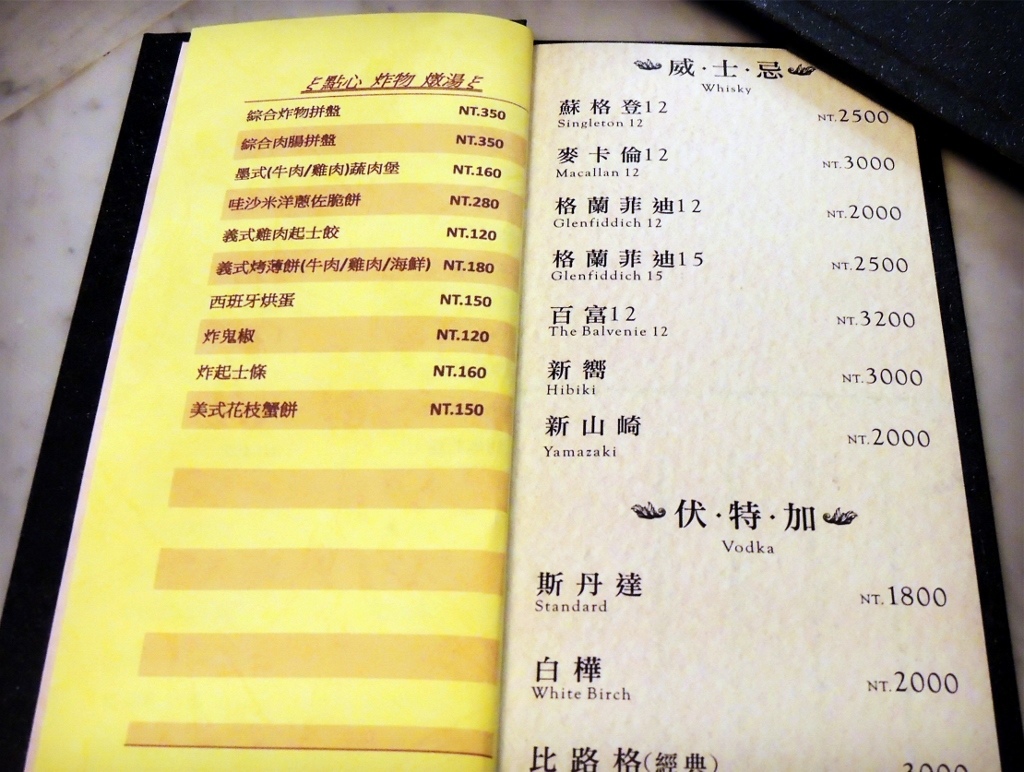 點心 炸物 燉湯
綜合炸物拼盤 NT.350
綜合肉腸拼盤 NT.350
墨式(牛肉/雞肉)蔬肉堡 NT.160
哇沙米洋蔥佐脆餅 NT.280
義式雞肉起士餃 NT.120
義式烤薄餅(牛肉/雞肉/海鮮) NT.180
西班牙烘蛋 NT.150
炸鬼椒 NT.120
炸起士條 NT.160
美式花枝蟹餅 NT.150
威·士·忌
Whisky
蘇格登12 NT.2500
Singleton 12
麥卡倫12 NT.3000
Macallan 12
格蘭菲迪12 NT.2000
Glenfiddich 12
格蘭菲迪15 NT.2500
Glenfiddich 15
百富12 NT.3200
The Balvenie 12
新嚮 NT.3000
Hibiki
新山崎 NT.2000
Yamazaki
伏·特·加
Vodka
斯丹達 NT.1800
Standard
白樺 NT.2000
White Birch
比路格(經典)